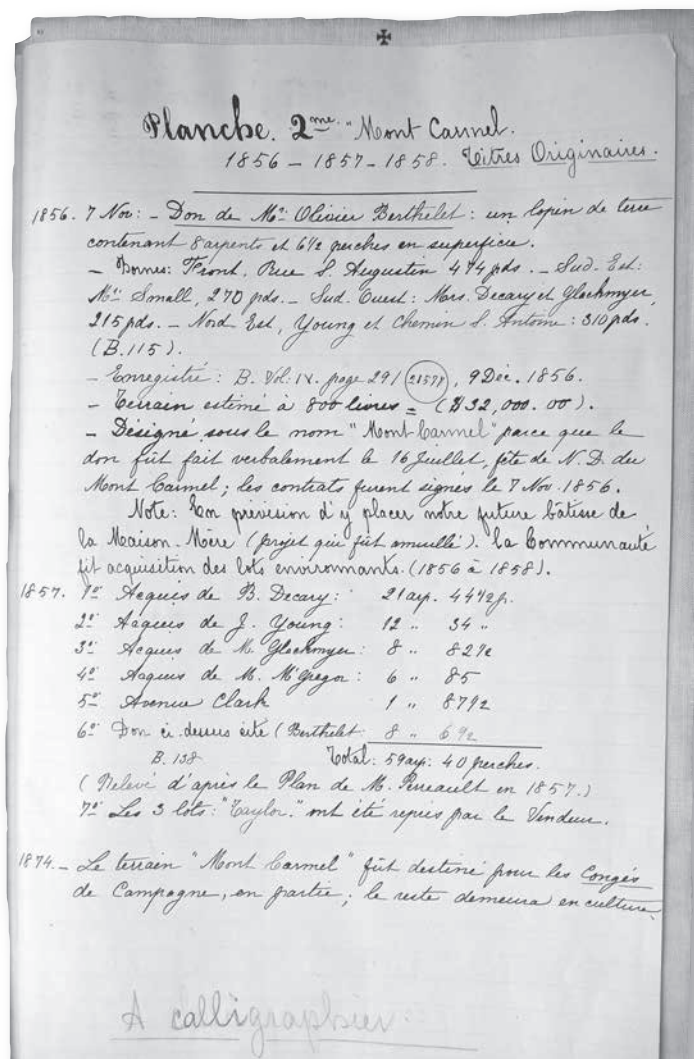 Planche. 2me. "Mont Carmel.
1856 – 1857 – 1858. Titres Originaires.
1856. 7 Nov: – Don de Mr: Olivier Berthelet: un lopin de terre
contenant 8 arpents et 6½ perches en superficie.
– Bornes: Front, Rue S. Augustin 474 pds. – Sud. Est:
Mr: Small, 270 pds. – Sud. Ouest: Mrs. Decary et Glackmyer,
215 pds. – Nord Est, Young et Chemin S. Antoine: 310 pds.
(B.115).
– Enregistré: B. Vol: IX. page 291 , 9 Déc. 1856.
– Terrain estimé à 800 livres = ($32,000.00).
– Désigné sous le nom "Mont Carmel" parce que le
don fût fait verbalement le 16 Juillet, fête de N. D. du
Mont Carmel; les contrats furent signés le 7 Nov. 1856.
Note: En prévision d'y placer notre future bâtisse de
la Maison-Mère (projet qui fût annullé). la Communauté
fit acquisition des lots environnants. (1856 à 1858).
1857. 1o Acquis de B. Decary: 21 arp. 44½ p.
2o Acquis de J. Young: 12 " 34 "
3o Acquis de M. Glackmyer: 8 " 82½
4o Acquis de M. McGregor: 6 " 85
5o Avenue Clark 1 " 87½
6o Don ci-dessus cité (Berthelet 8 " 6½
B. 138 Total: 59 arp: 40 perches.
(Relevé d'après le Plan de M. Perreault en 1857.)
7o Les 3 lots: "Taylor." ont été repris par le Vendeur.
1874. – Le terrain "Mont Carmel" fût destiné pour les Congés
de Campagne, en partie; le reste demeura en culture.
A calligraphier: